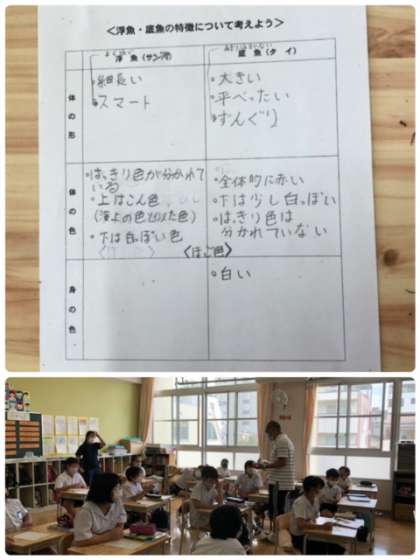 <浮魚・底魚の特徴について考えよう>
浮魚(サンマ)
底魚(タイ)
体の形
・細長い
・スマート
・大きい
・平べったい
・ずんぐり
体の色
・はっきり色が分かれて
いる
・上はこん色
・下は白っぽい色
・全体的に赤い
・下は少し白っぽい
・はっきり色は
分かれていない
<ほご色>
身の色
・白い